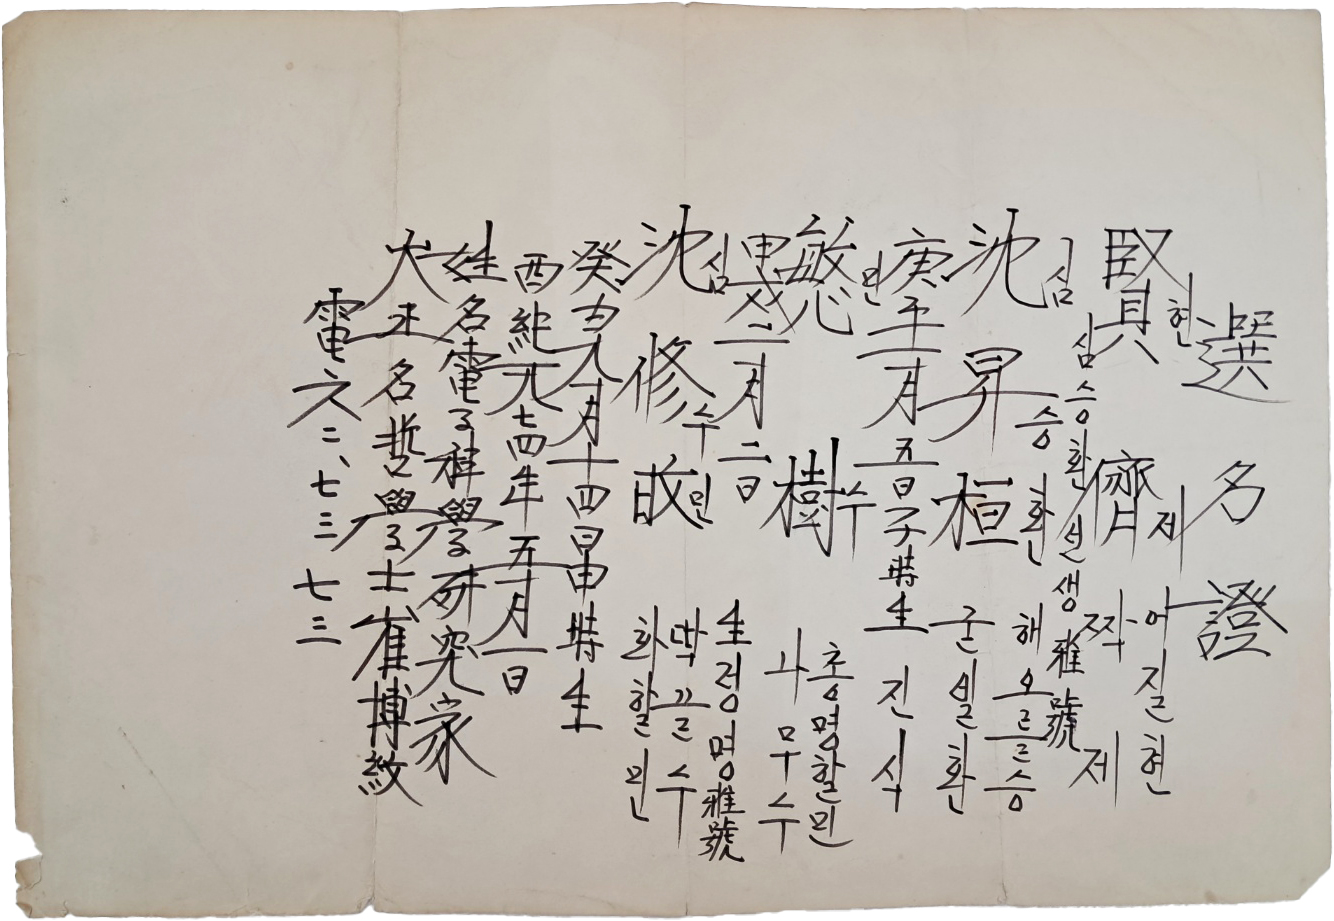 選名證
賢 현 儕 제 어질현
짝제
심승환선생雅號
沈 심 昇 승 桓 환 해오르승
굳셀환
庚 月五日子時生 진식
慜 민 樹 수 총명할민
나무수
二月二日 生정명雅號
沈 심 修 수 旼 민 딱글수
화할민
癸丑九月十四日申時生
西紀一九七四年五月一日
姓名電子科學研究家
名哲學士崔博紋
電六二、七三七三